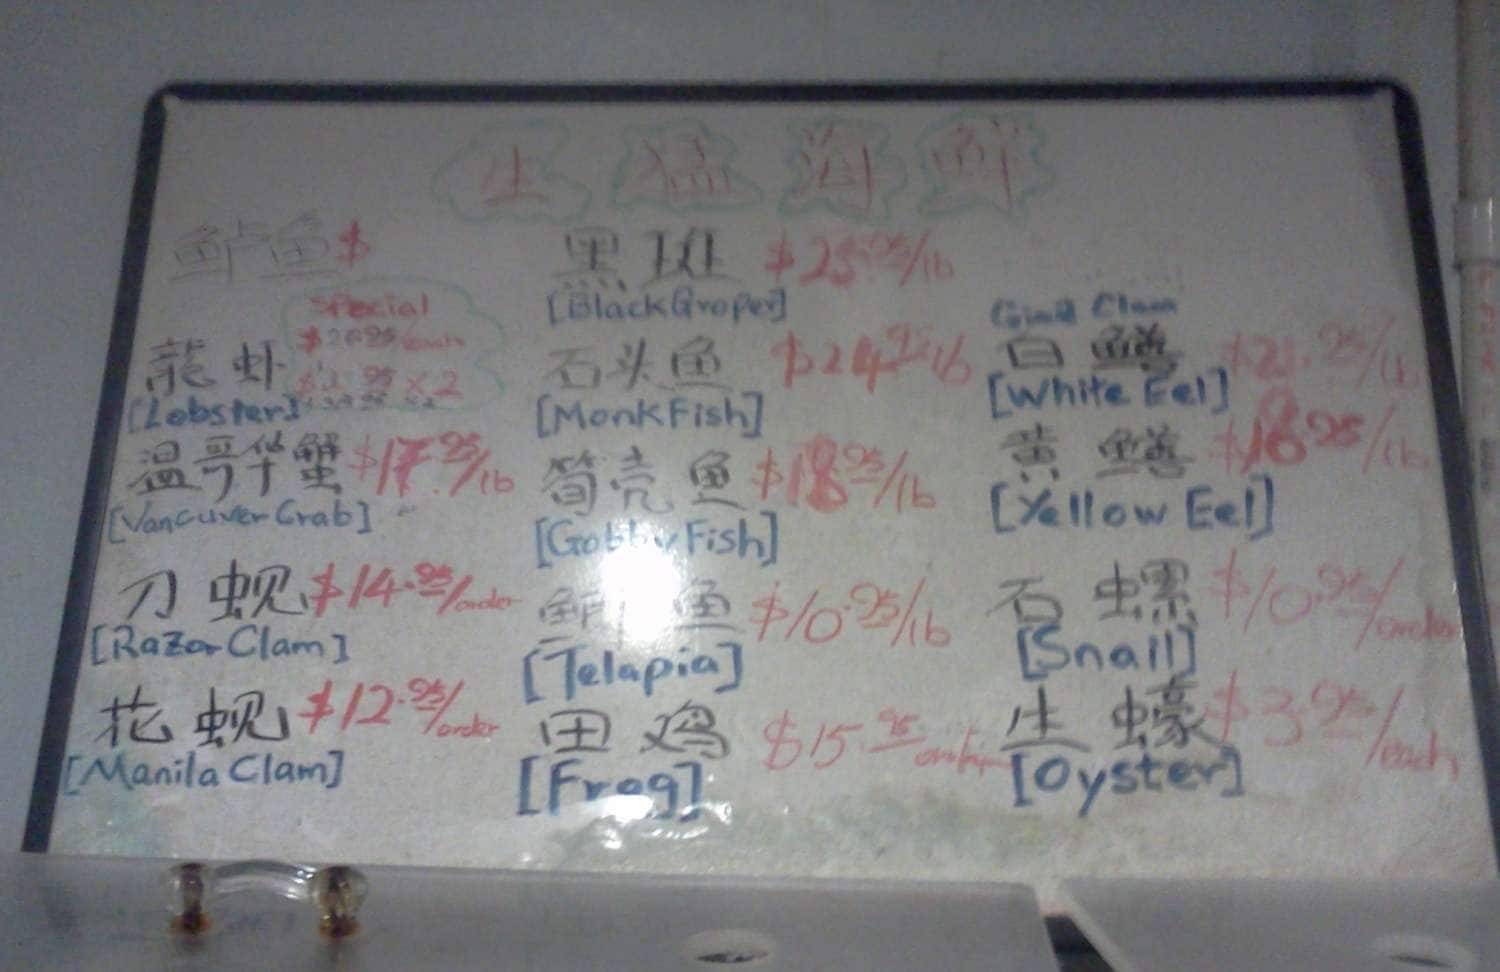 生猛海鲜
鲈鱼 $
Special
龍虾
[Lobster]
温哥华蟹 $17.95/lb
[Vancuver Crab]
刀蚬 $14.95/order
[Razor Clam]
花蚬 $12.95/order
[Manila Clam]
黑班 $25.95/lb
[Black Groper]
石头鱼 $24.95 lb
[Monk Fish]
筍壳鱼 $18.95/lb
[Gobby Fish]
鱼 $10.95/lb
[Telapia]
田鸡 $15.95
[Frog]
Clam
白鳝 .95/lb
[White Eel]
黄鳝 .95/lb
[Yellow Eel]
石螺 $10.95/order
[Snail]
生蠔 $3.95/each
[Oyster]